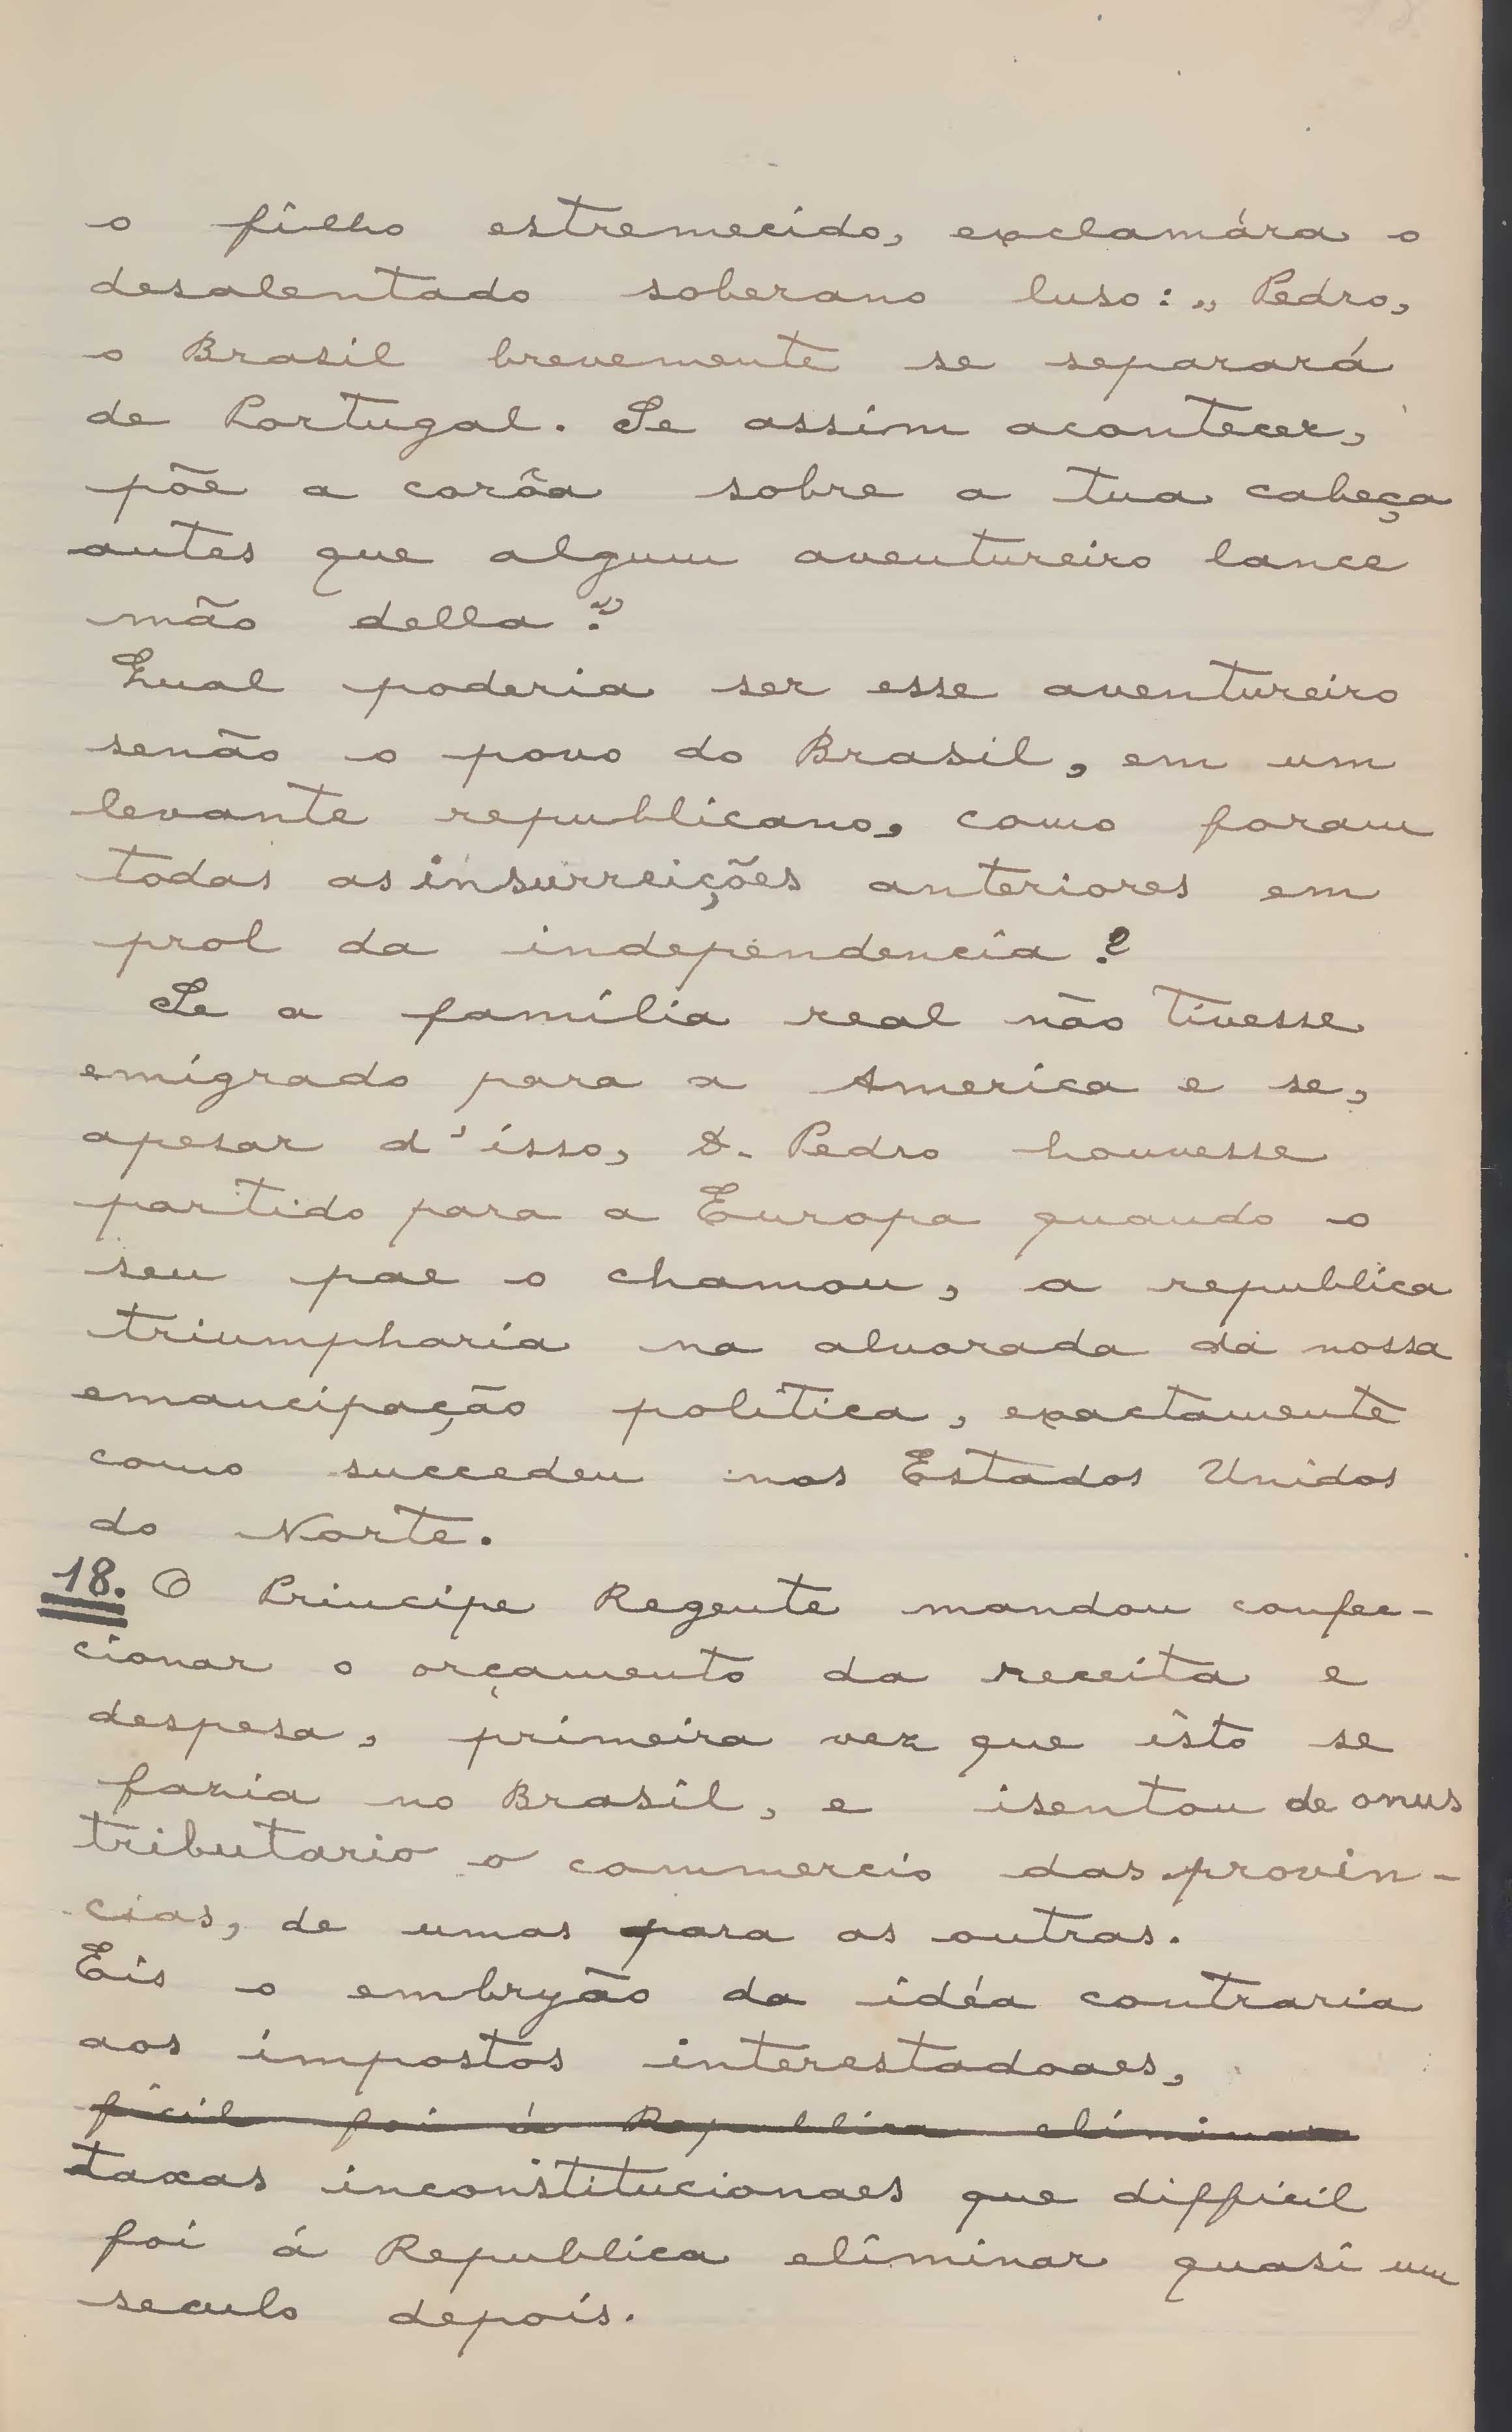 o filho estremecido, exclamára o
desalentado soberano luso: „ Pedro,
o Brasil brevemente se separará
de Portugal. Se assim acontecer,
põe a corôa sobre a tua cabeça
antes que algum aventureiro lance
mão della."
Qual poderia ser esse aventureiro
senão o povo do Brasil, em um
levante republicano, como foram
todas as insurreições anteriores em
prol da independencia?
Se a família real não tivesse
emigrado para a America e se,
apesar d'isso, D. Pedro houvesse
partido para a Europa quando o
seu pae o chamou, a republica
triumpharia na alvorada da nossa
emancipação politica, exactamente
como succedeu nos Estados Unidos
do Norte.
18. O Principe Regente mandou confec-
cionar o orçamento da receita e
despesa, primeira vez que isto se
fazia no Brasil, e isentou de onus
tributario o commercio das provin-
cias, de umas para as outras.
Eis o embryão da idéa contraria
aos impostos interestadoaes,
ficil foi á Republica eliminar
taxas inconstitucionaes que difficil
foi á Republica eliminar quasi um
seculo depois.